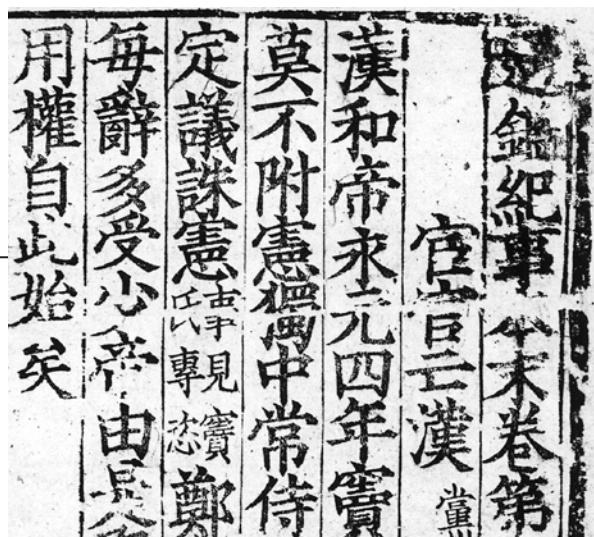 通鑑紀事本末卷第
宦官亡漢 黨
漢和帝永元四年竇
莫不附憲獨中常侍
定議誅憲事見竇氏專恣鄭
每辭多受少帝由是
用權自此始矣